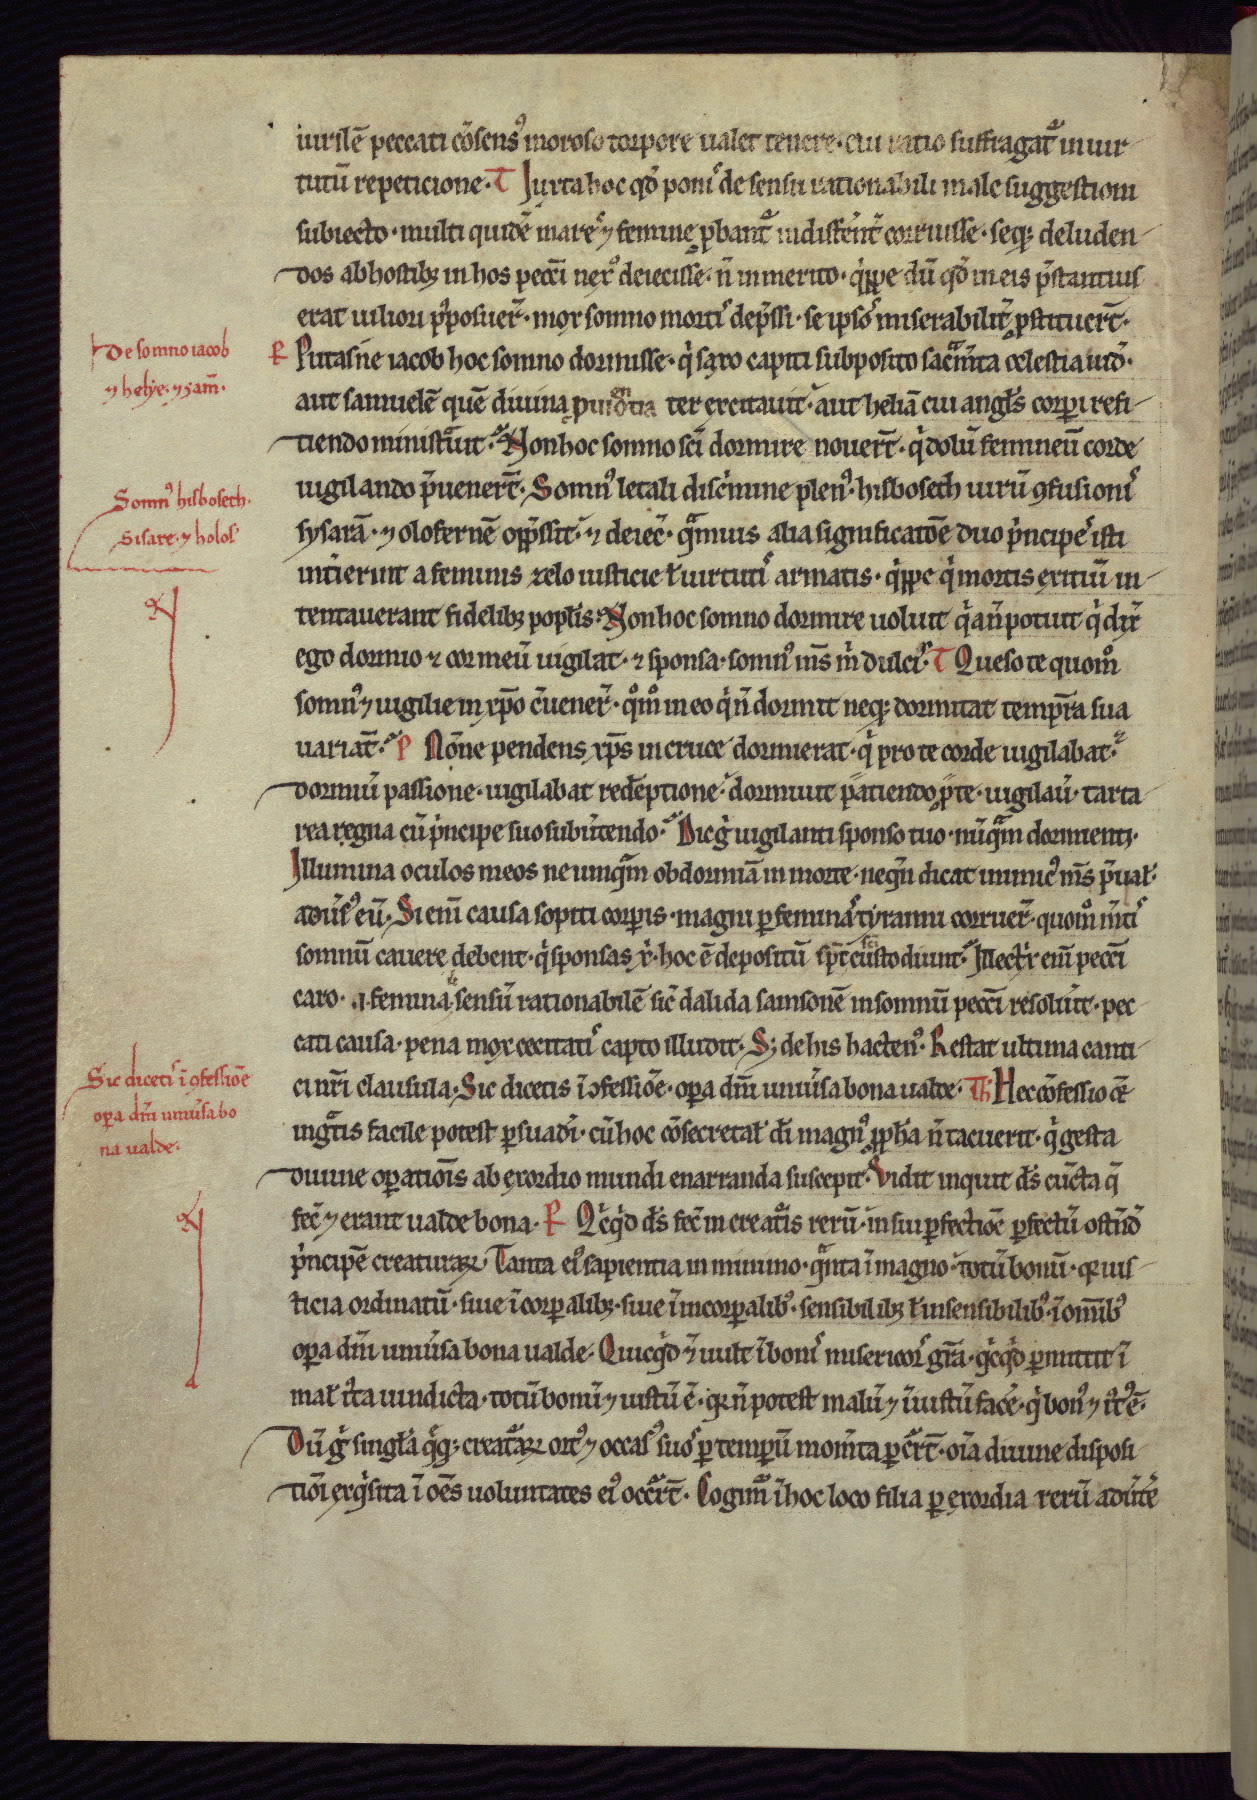 iuuilē peccati cōsensꝰ moroso torpore ualet tenere · cui ratio suffragat᷑ in uir
tutū repeticione · T Iuxta hoc qd̄ ponis de sensu rationabili male suggestioni
subiecto · multi quidē mares ⁊ femine ꝓbant᷑ indifferent̄ corruisse · seqꝫ deluden
dos ab hostibꝫ in hos pecc̄i neruos deiecisse · n̄ inmerito · q̇ppe dū qd̄ in eis p̄stantius
erat uiliori p̄posuer̄ · mox somno mortis dep̄ssi · se ipsos miserabilit̄ ꝓstituert̄ ·
De somno iacob
⁊ helye · ⁊ sam̄ ·
P Putasne iacob hoc somno dormisse · q̇ saxo capiti subposito sacm̄ta celestia uid̄ ·
aut samuelē quē diuina ꝓuidentia ter excitauit · aut heliā cui angl's corꝑi refi
ciendo ministrauit · Non hoc somno sc̄i dormire nouert̄ · q̇ dolū femineū corde
uigilando p̄uenert̄ · Somnꝰ letali disċmine plenꝰ · hisboseth uirū ꝯfusionis
Somnꝰ hisboseth ·
Sisare · ⁊ holof̄
sysarā · ⁊ olofernē opp̄ssit · ⁊ deiec̄ · quāuis alia significatōe duo ṗncipes isti
int̄ierunt a feminis zelo iusticie ł uirtutis armatis · q̇ppe q̇ mortis exitiū in
tentauerant fidelibꝫ popl̄is · Non hoc somno dormire uoluit q̇a n̄ potuit q̇ dix̄
ego dormio ⁊ cor meū uigilat · ⁊ sponsa · somnꝰ m̄s m̄ dulcis · T Queso te quom̊
somnꝰ ⁊ uigilie in xp̄o c̄uener̄ · qm̊ in eo q̇ n̄ dormit neqꝫ dormitat temp̄ra sua
uariat̄ · P Nōne pendens xp̄s in cruce dormierat · q̇ pro te corde uigilabat ·
dormiū passione · uigilabat redēptione · dormiuit patiendo ꝓ te · uigilau̇ · tarta
rea regna cū ṗncipe suo subūtendo · Dic ġ uigilanti sponso tuo · nūquā dormienti ·
Illumina oculos meos ne umquā obdormiā in morte · neqn̄ dicat inimicꝰ m̄s p̄ual̄ ·
adūsꝰ eū · Si eni causa sopiti corꝑis · magni ꝑ feminas tyranni corruer̄ · quom̊ m̄tis
somnū cauere debent · q̇ sponsas x̄ · hoc ē depositū sp̄c sc̄i custodiunt · Illect̄x enī pecc̄i
caro · ı · femina sensū rationabilē sic̄ dalida samsonē in somnū pecc̄i resoluit · pec
cati causa · pena mox cecitatis capto illudit · Sꝫ de his hactenꝰ · Restat ultima canti
Sic dicetis ī ꝯfessiōe
opa dn̄i uniūsa bo
na ualde ·
ci nr̄i clausula · Sic dicetis ī ꝯfessiōe · oꝑa dn̄i uniūsa bona ualde · Th Hec cōfessio cē
ingratis facile potest ꝑsuadi · cū hoc cōsecretal' di magnꝰ ꝓph̄a n̄ tacuerit · q̇ gesta
diuine oꝑationis ab exordio mundi enarranda suscepit · Vidit inquit d's cūcta q̄
fec̄ ⁊ erant ualde bona · P Qċqd d's fec̄ in creaturis rerū · in sui ꝑfectiōe ꝑfectū ostn̄d
ṗncipē creaturaꝝ · Tanta eiꝰ sapientia in minimo · quanta ī magno · totū bonū · q̇a ius
ticia ordinatū · siue ī corꝑalibꝫ · siue ī incorꝑalibꝰ · sensibilibꝫ ł insensibilibꝰ · ī om̄ibꝰ
oꝑa dn̄i uniūsa bona ualde · Quicqd ⁊ uult ī bonis misericor̄ gr̄a · qċqd ꝑmittit ī
mał ita uindicta · totū bonū ⁊ iustū ē · q̇a n̄ potest malū ⁊ īiustū facē · q̇ bonꝰ ⁊ iustꝰ ē ·
Dū ġ singl̄a q̄qꝫ creaturaꝝ ortꝰ ⁊ occasꝰ suos ꝑ temꝑū mom̄ta ꝑc̄rt̄ · oīa diuine disposi
tiōi exq̇sita ī oēs uoluntates eiꝰ occ̄rt̄ · Cogim̄ ī hoc loco filia ꝑ exordia rerū adūtē